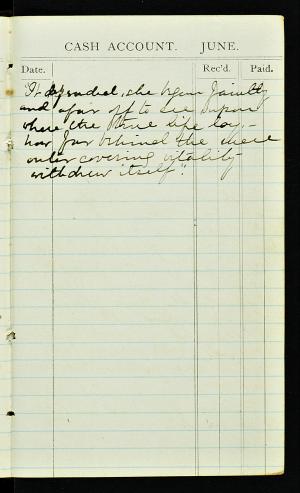 CASH ACCOUNT. JUNE.
Date. Rec'd. Paid.
"It degraded, she began faintly
and afar off to see upon
where the true life lay,–
how far behind the mere
outer covering vitality
withdrew itself."